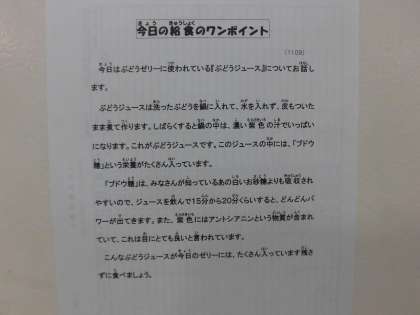 今日の給食のワンポイント
(1109)
今日はぶどうゼリーに使われている『ぶどうジュース』についてお話し
ます。
ぶどうジュースは洗ったぶどうを鍋に入れて、水を入れず、皮もついた
まま煮て作ります。しばらくすると鍋の中は、濃い紫色の汁でいっぱい
になります。これがぶどうジュースです。このジュースの中には、「ブドウ
糖」という栄養がたくさん入っています。
「ブドウ糖」は、みなさんが知っているあの白いお砂糖よりも吸収され
やすいので、ジュースを飲んで15分から20分くらいすると、どんどんパ
ワーが出てきます。また、紫色にはアントシアニンという物質が含まれ
ていて、これは目にとても良いと言われています。
こんなぶどうジュースが今日のゼリーには、たくさん入っています残さ
ずに食べましょう。